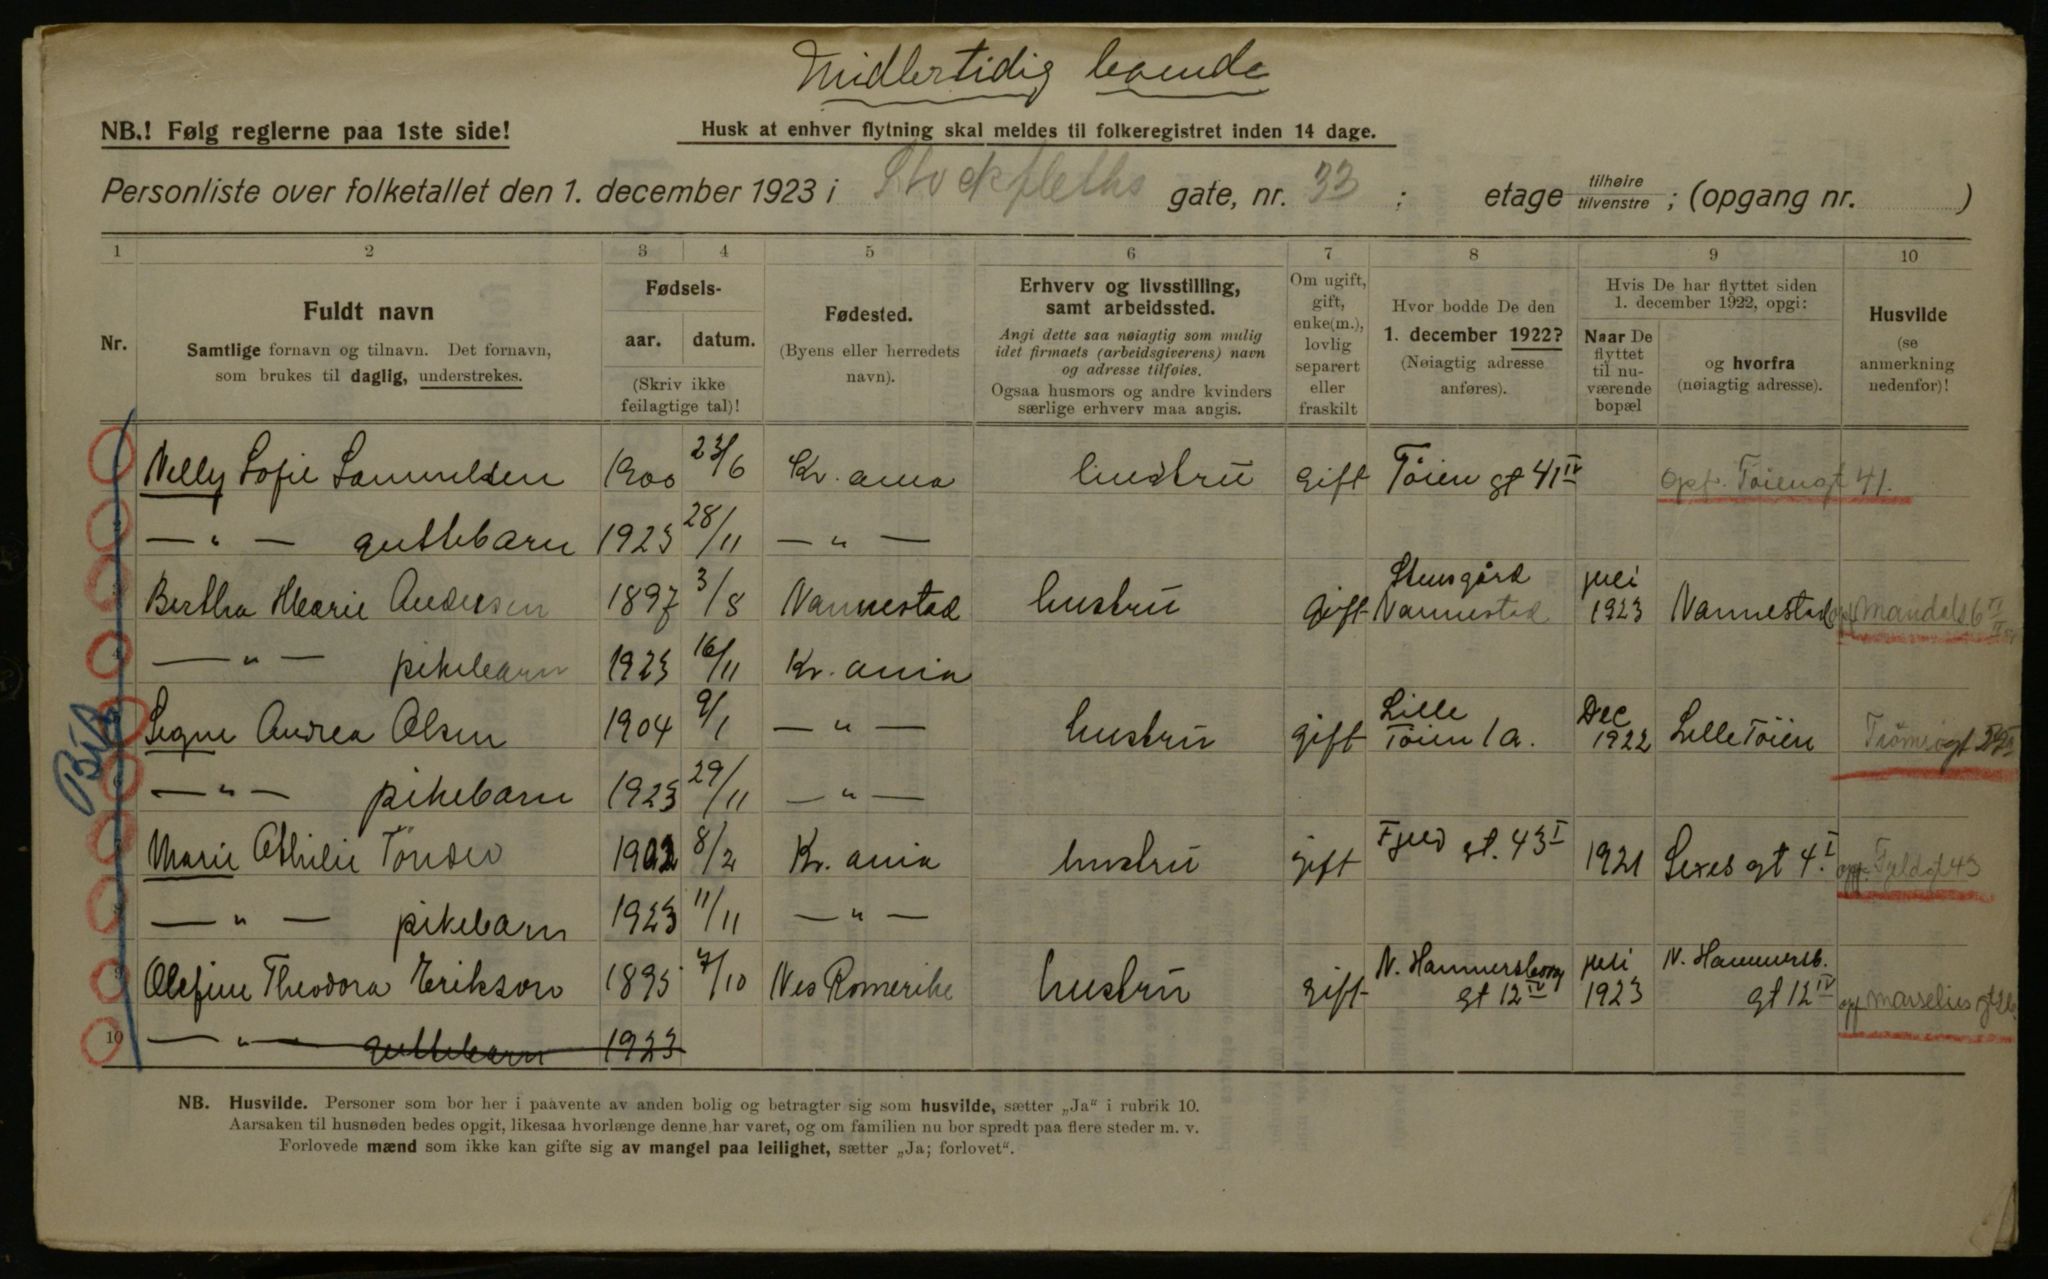 Midlertidig boende
NB.! Følg reglerne paa 1ste side!
Husk at enhver flytning skal meldes til folkeregistret inden 14 dage.
Personliste over folketallet den 1. december 1923 i Stockfleths gate, nr. 33 ; etage tilhøire tilvenstre ; (opgang nr. )
1 2 3 4 5 6 7 8 9 10
Nr.
Fuldt navn
Samtlige fornavn og tilnavn. Det fornavn,
som brukes til daglig, understrekes.
Fødsels-
aar. datum.
(Skriv ikke
feilagtige tal)!
Fødested.
(Byens eller herredets
navn).
Erhverv og livsstilling,
samt arbeidssted.
Angi dette saa nøiagtig som mulig
idet firmaets (arbeidsgiverens) navn
og adresse tilføies.
Ogsaa husmors og andre kvinders
særlige erhverv maa angis.
Om ugift,
gift,
enke(m.),
lovlig
separert
eller
fraskilt
Hvor bodde De den
1. december 1922?
(Nøiagtig adresse
anføres).
Hvis De har flyttet siden
1. december 1922, opgi:
Naar De
flyttet
til nu-
værende
bopæl
og hvorfra
(nøiagtig adresse).
Husvilde
(se
anmerkning
nedenfor)!
Nelly Sofie Samuelsen 1900 23/6 Kr. ania hustru gift Töien gt 41 IV opf. Töiengt 41.
— " — guttebarn 1923 28/11 — " —
Bertha Marie Andersen 1897 3/8 Nannestad hustru gift Stensgård Nannestad juli 1923 Nannestad opf Mandals 6
— " — pikebarn 1923 16/11 Kr. ania
Signe Andrea Olsen 1904 9/1 — " — hustru gift Lille Töien 1a. Dec 1922 Lille Töien Tromsøgt
— " — pikebarn 1923 29/11 — " —
Marie Othilie 1902 8/2 Kr. ania hustru gift Fjeld gt. 43 I 1921 Sexes gt 4 I. opf. Fjeldgt 43
— " — pikebarn 1923 11/11 — " —
9 Olefine Theodora Erikson 1895 7/10 Nes Romerike hustru gift N. Hammersborg gt 12 IV juli 1923 N. Hammersb. gt 12 IV opf Marselies gt
10 — " — guttebarn 1923
NB. Husvilde. Personer som bor her i paavente av anden bolig og betragter sig som husvilde, sætter „Ja" i rubrik 10.
Aarsaken til husnøden bedes opgit, likesaa hvorlænge denne har varet, og om familien nu bor spredt paa flere steder m. v.
Forlovede mænd som ikke kan gifte sig av mangel paa leilighet, sætter „Ja; forlovet".